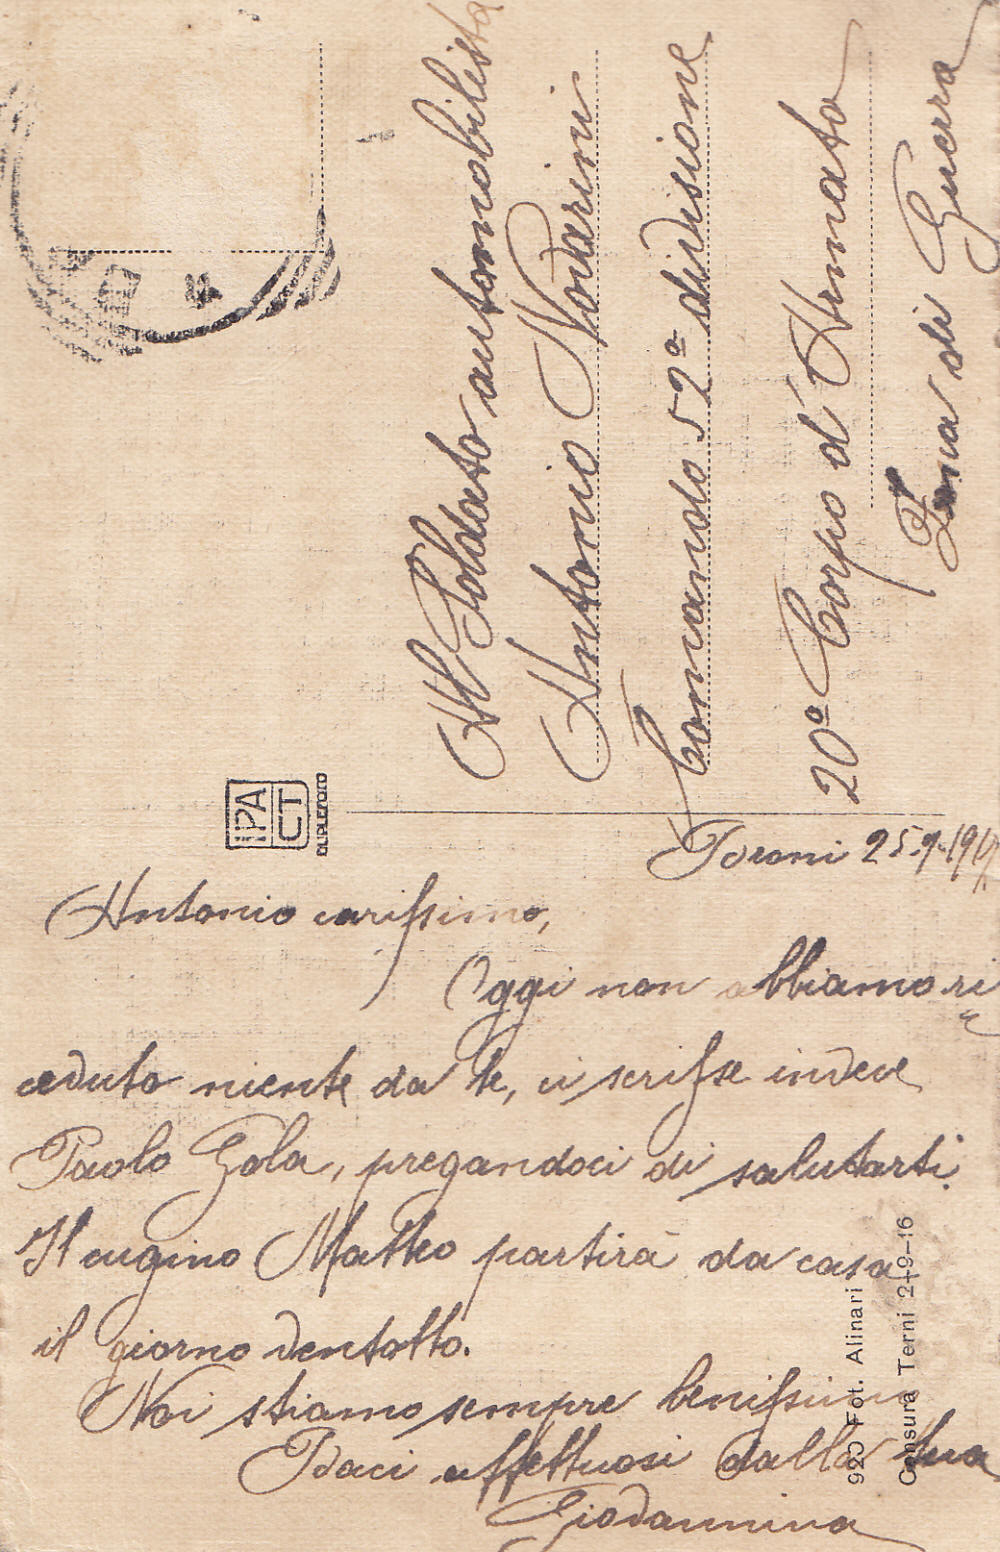 Al Soldato automobilista
Antonio Novarini
Comando 52ª divisione
20º Corpo d'Armato
Zona di Guerra
IPA CT
DUPLEFOTO
25.9.
Antonio carissimo,
Oggi non abbiamo ri
cevuto niente da te, ci scrisse invece
Paolo Gola, pregandoci di salutarti.
Il cugino Matteo partirà da casa
il giorno ventotto.
Noi stiamo sempre benissimo
Baci affettuosi dalla tua
Giovannina
920 Fot. Alinari
Censura Terni 2-9-16